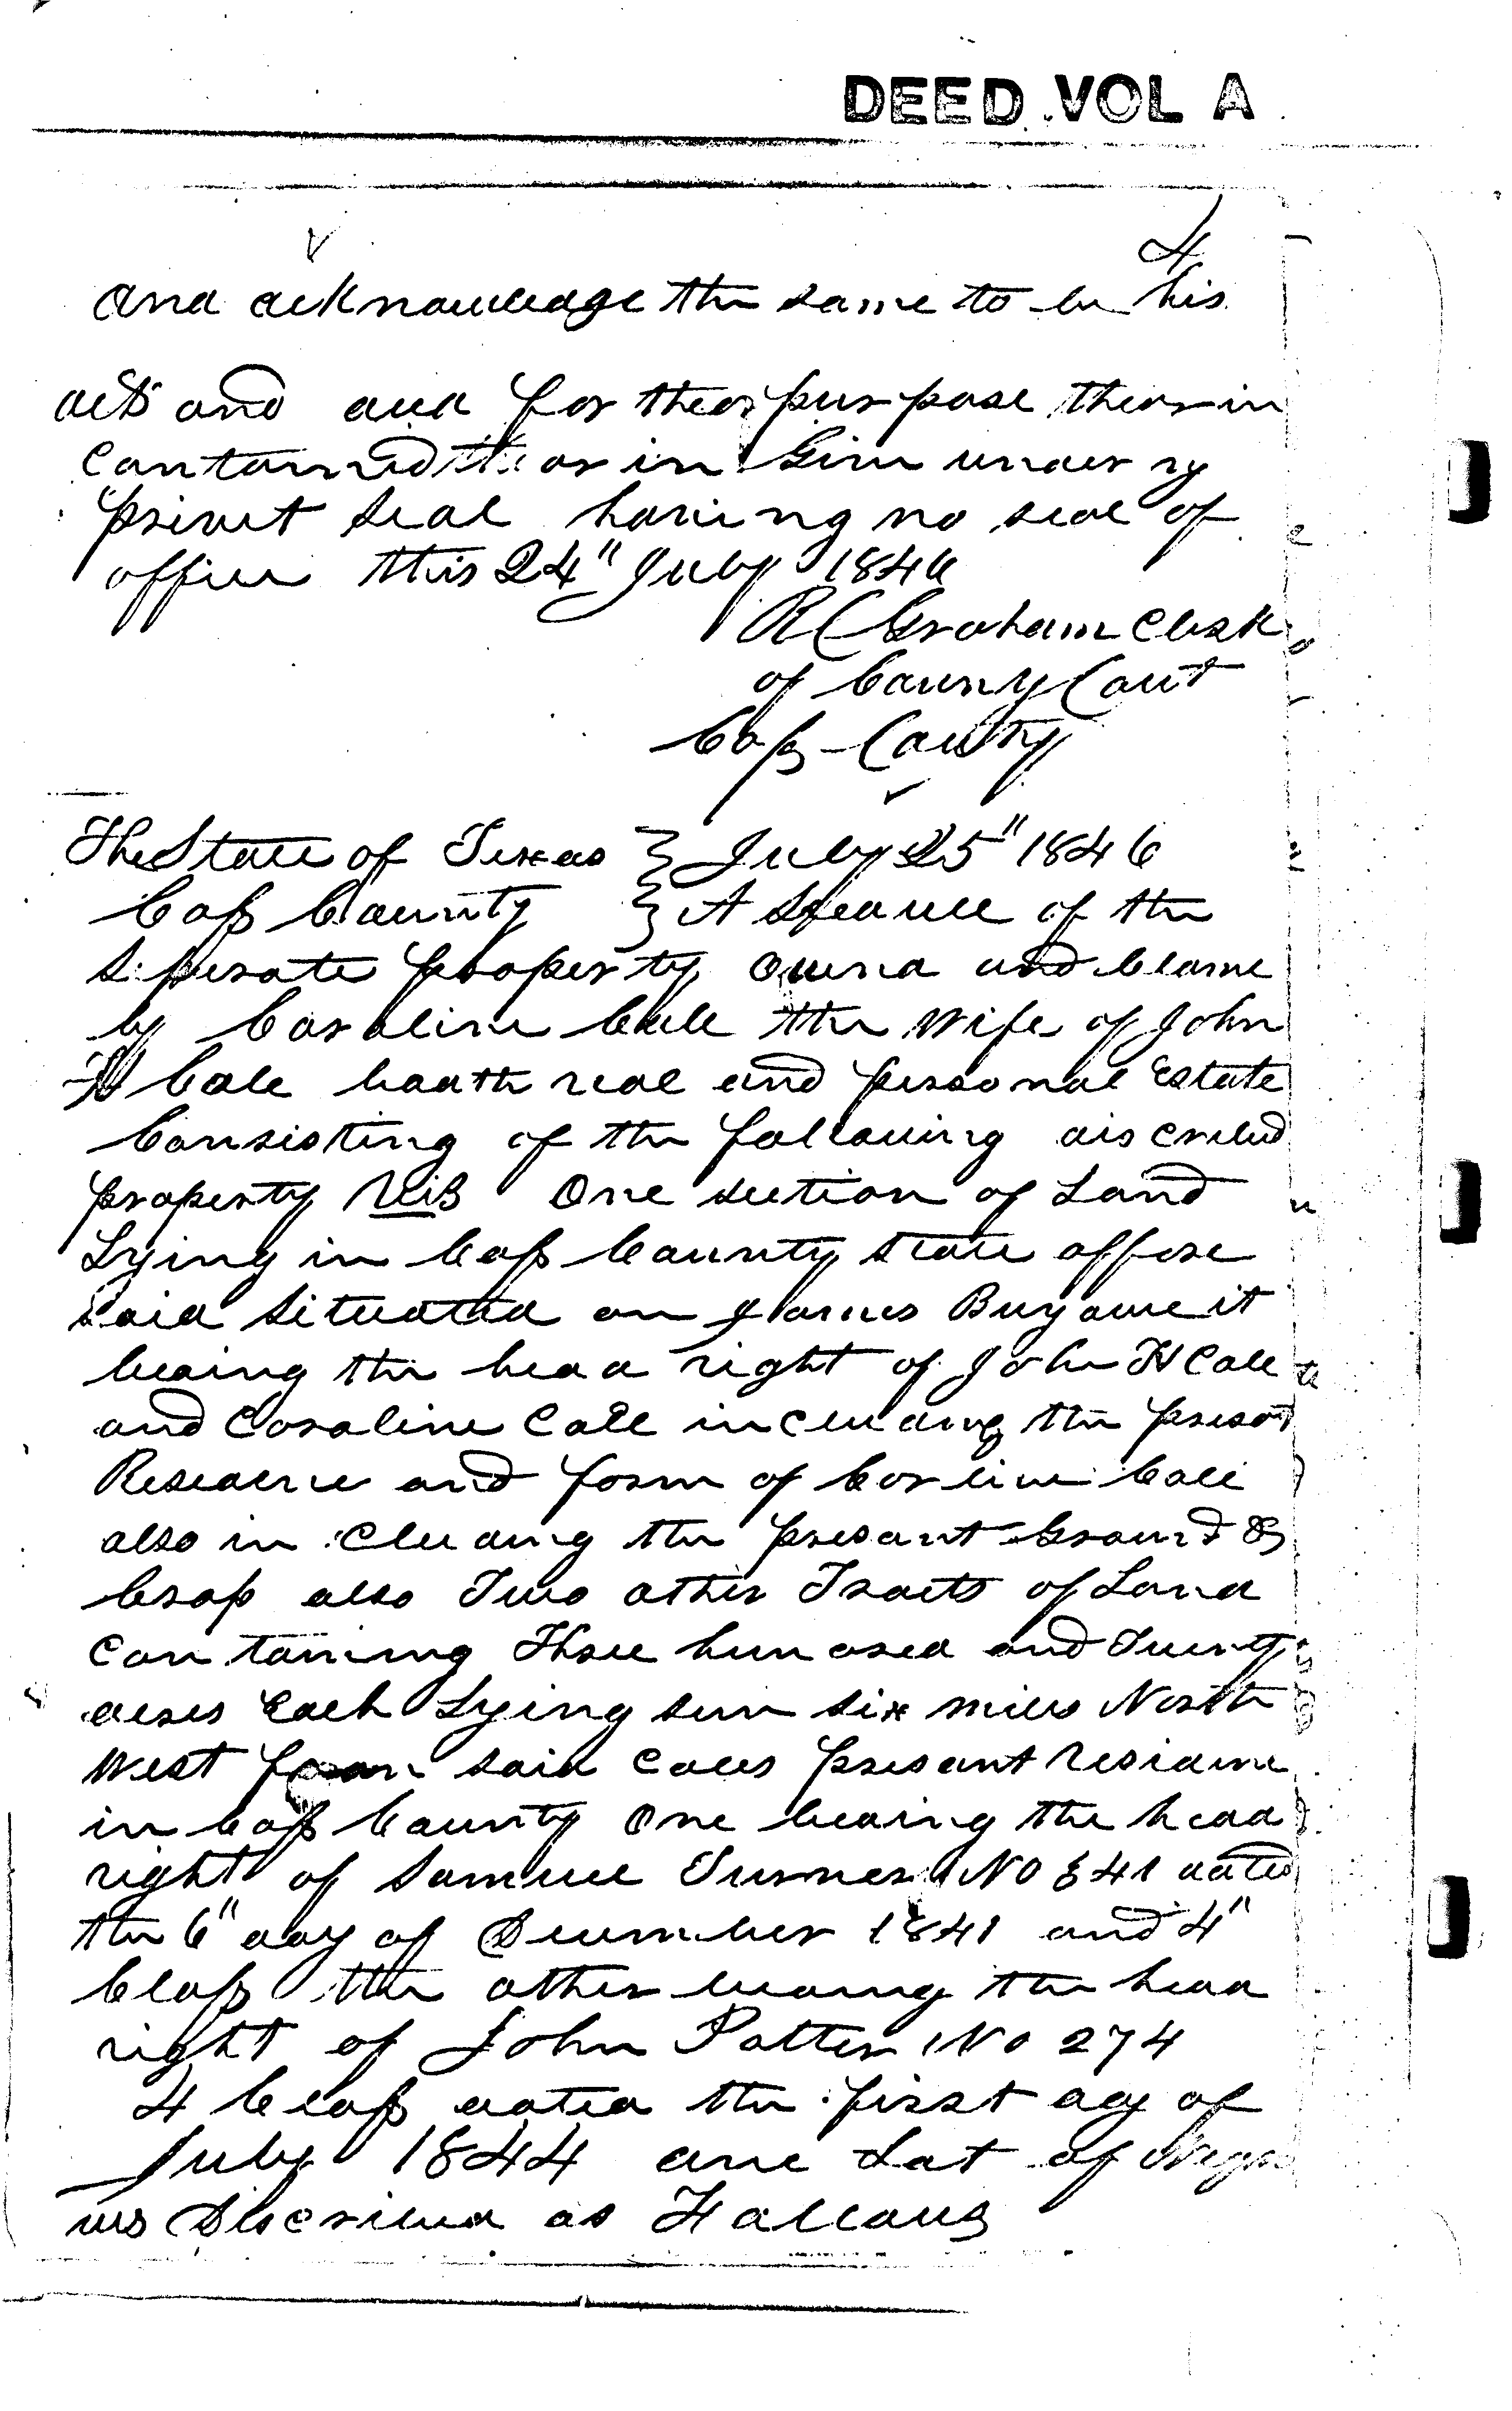 DEED VOL A
4
and acknowledge the same to be his
acts and deed for the purpose therein
contained therein Given under my
privet seal having no seal of
office this 24" July 1846
R C Graham Clerk
of County Cout
Cass County
The State of Texas } July 25" 1846
Cass County } A of the
seperate property owned and
by Caroline Cole the Wife of John
H Cole boath real and personal Estate
Consisting of the following discribed
property Viz One section of Land
Lying in Cass County State affore
said situated on James Buyawe it
beaing the head right of John H Cole
and Caroline Cole including the
and farm of Carline Cole
also in cluding the presant Ground &
Crop also Two other Tracts of Land
Containing Three hundred and Twenty
acres Each Lying sum six miles North
West from said Coles presant residence
in Cass County One beaing the head
right of Samuel Turner No 341 dated
the 6" day of December 1841 and 4"
Class the other beaing the head
right of John Patter No 274
4 Class dated the first day of
July 1844 one Lot of Negr
ws Discribed as Follows